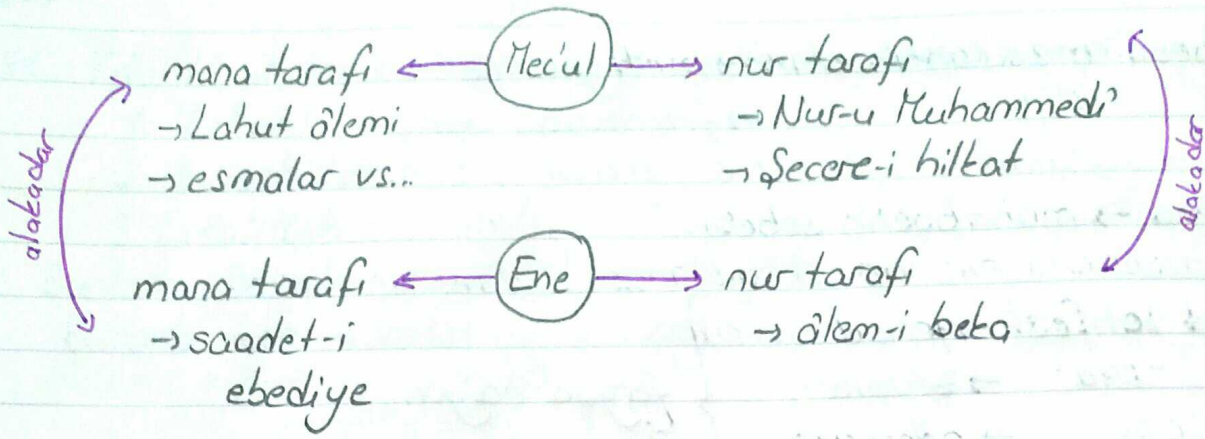 mana tarafı ← Mec'ul → nur tarafı
→ Lahut âlemi
→ esmalar vs...
→ Nur-u Muhammedî
→ Şecere-i hilkat
alakadar
alakadar
mana tarafı ← Ene → nur tarafı
→ saadet-i
ebediye
→ âlem-i beka